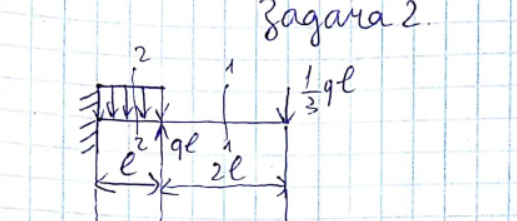 Задача 2.
2 1 1/3 qℓ
2 qℓ 1
ℓ 2ℓ